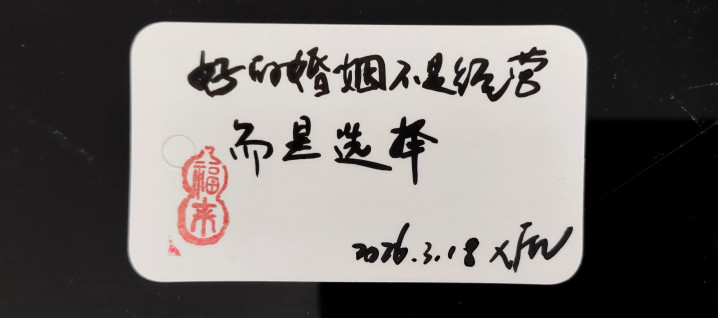 好的婚姻不是经营
而是选择
福来
2026.3.18